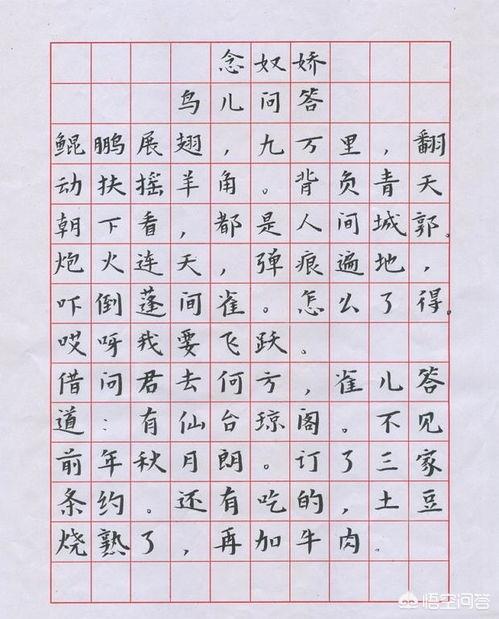 念奴娇
鸟儿问答
鲲鹏展翅，九万里，翻
动扶摇羊角。背负青天
朝下看，都是人间城郭。
炮火连天，弹痕遍地，
吓倒蓬间雀。怎么了得。
哎呀我要飞跃。
借问君去何方，雀儿答
道：有仙台琼阁。不见
前年秋月朗。订了三家
条约。还有吃的，土豆
烧熟了，再加牛肉。
悟空问答